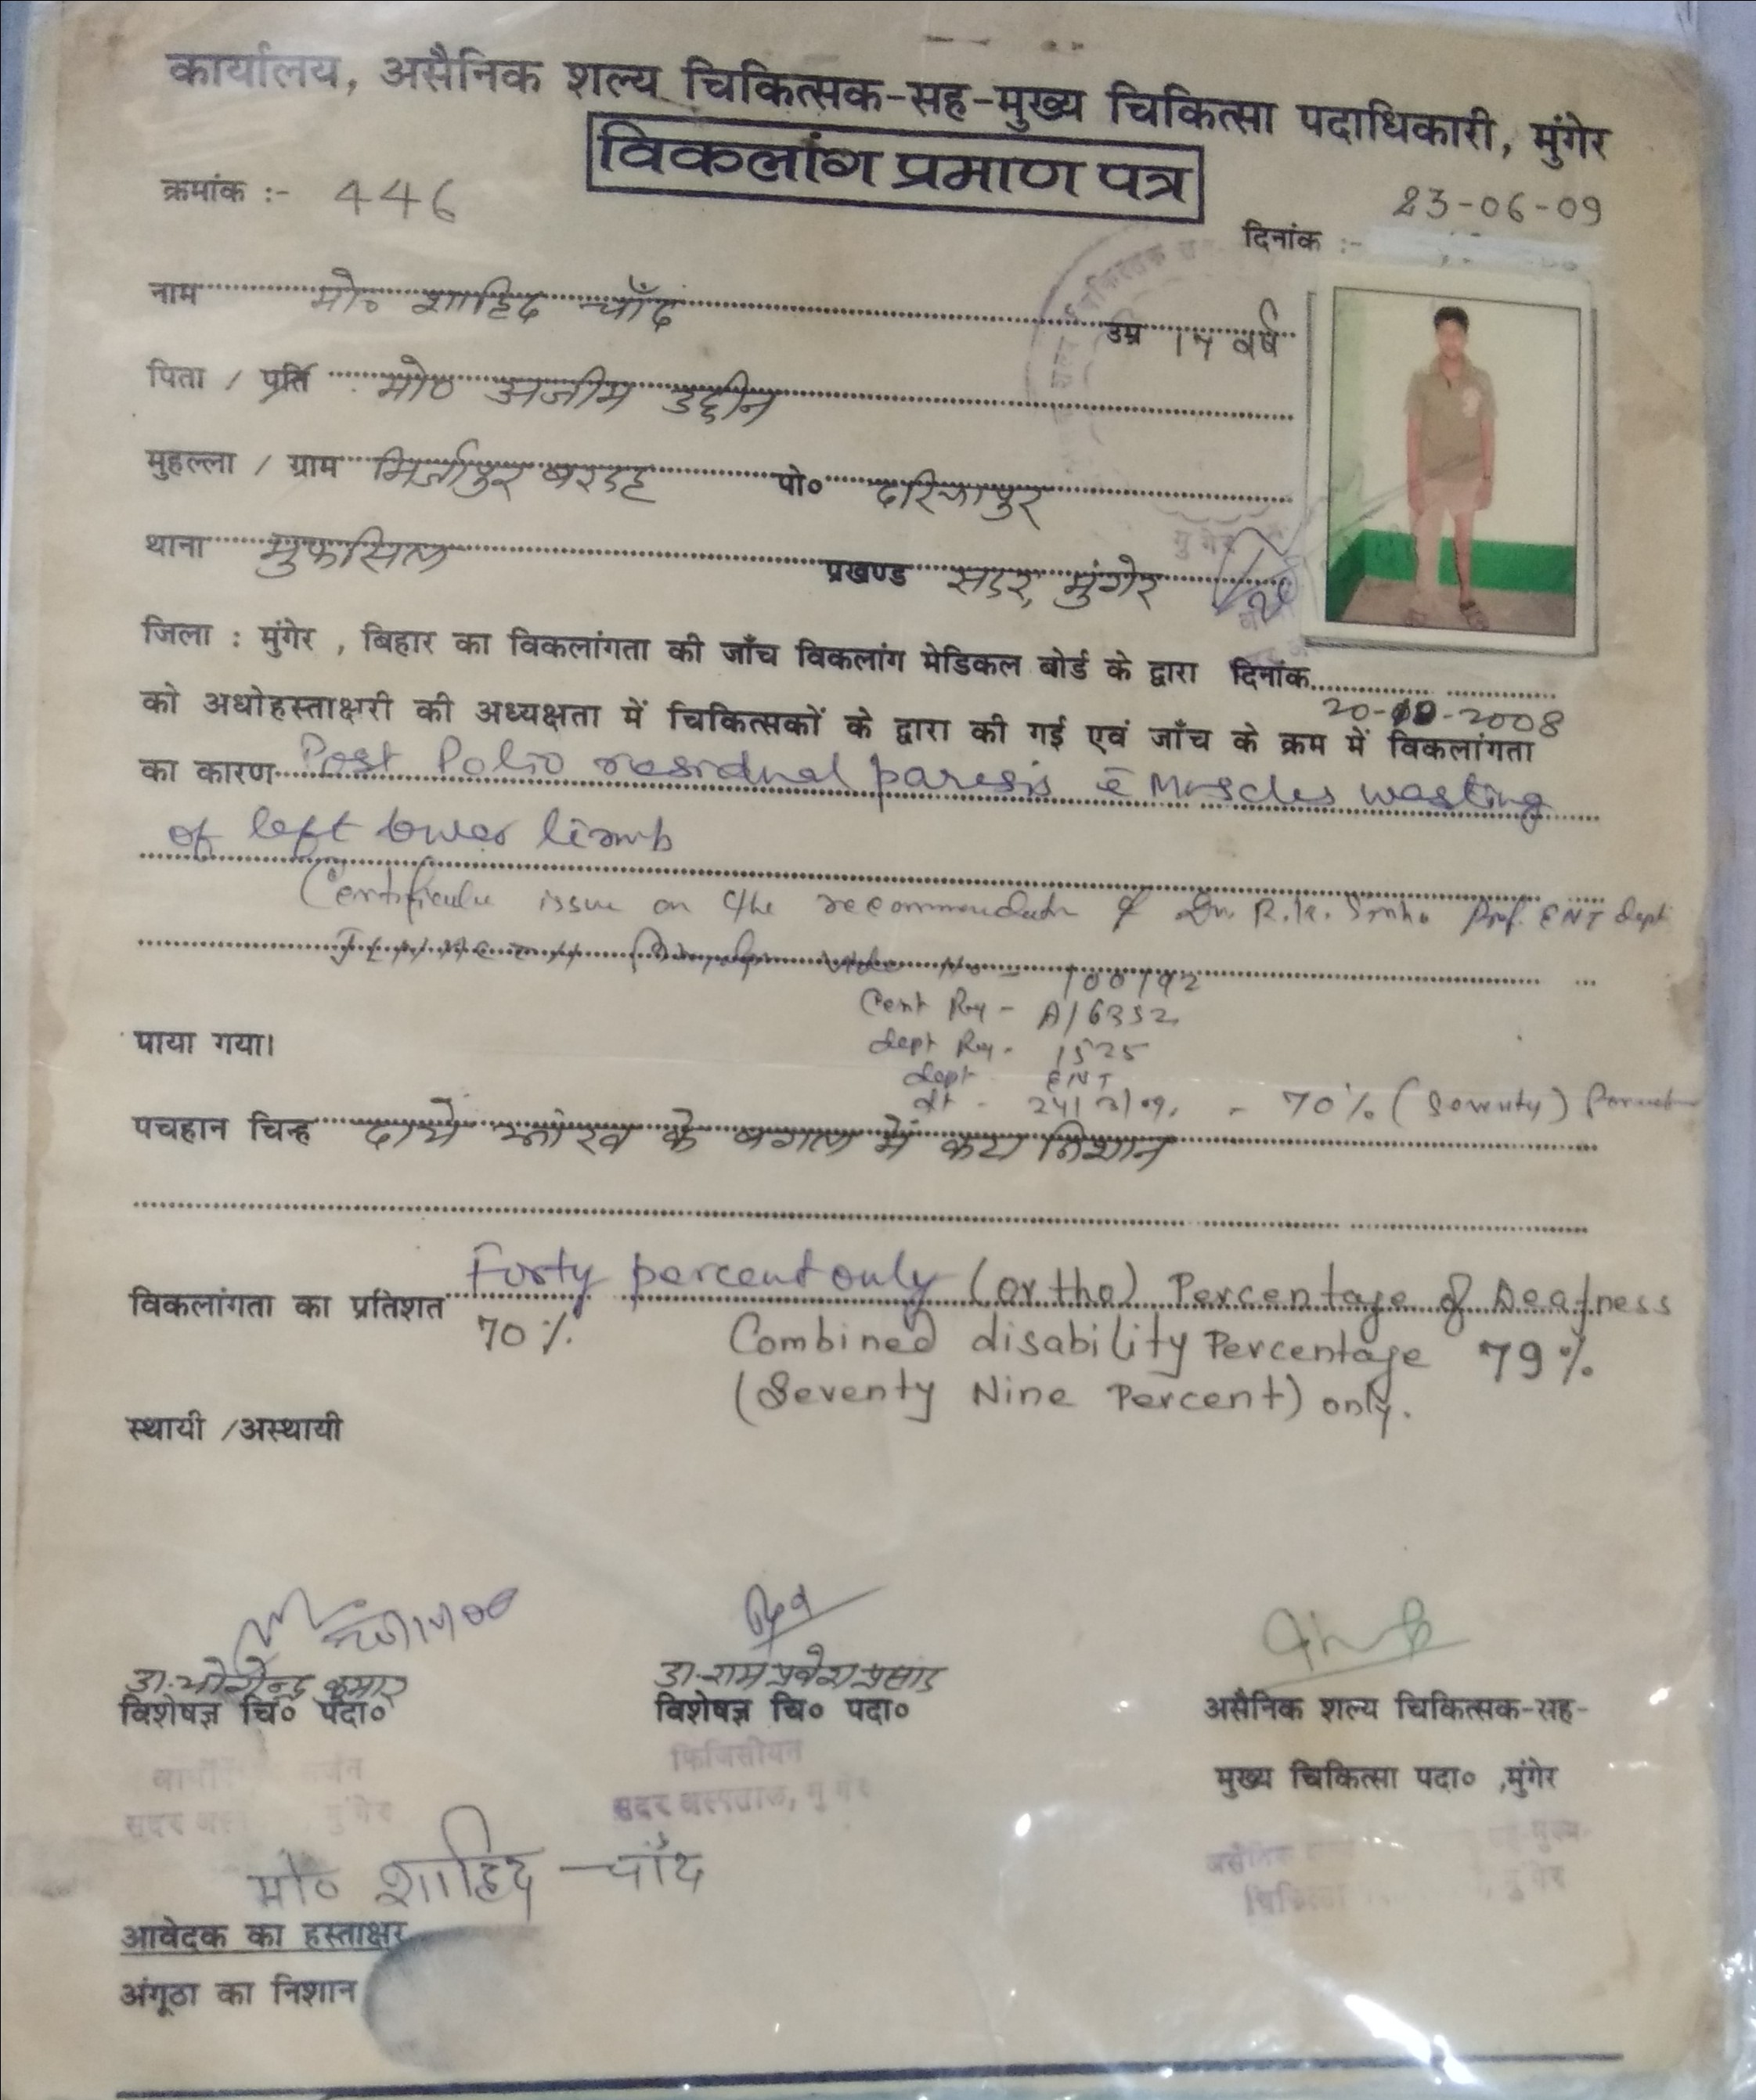 कार्यालय, असैनिक शल्य चिकित्सक-सह-मुख्य चिकित्सा पदाधिकारी, मुंगेर
विकलांग प्रमाण पत्र
क्रमांक :- 446
23-06-09
दिनांक :-
नाम मो० शाहिद चाँद
उम्र 14 वर्ष
पिता / पति मो० अजीम उद्दीन
मुहल्ला / ग्राम मिर्जापुर बरदह पो० दरियापुर
थाना मुफसिल प्रखण्ड सदर, मुंगेर
मुंगेर
जिला : मुंगेर , बिहार का विकलांगता की जाँच विकलांग मेडिकल बोर्ड के द्वारा दिनांक
20-10-2008
को अधोहस्ताक्षरी की अध्यक्षता में चिकित्सकों के द्वारा की गई एवं जाँच के क्रम में विकलांगता
का कारण Post Polio residual paresis c̄ Muscles wasting
of left lower limb
Certificate issue on the recommendation of Dr. R.K. Sinha Prof. ENT dept
vide No - 100792
Cent Reg - A/6352
पाया गया।
dept Reg - 1525
dept ENT
dt - 24/3/09. - 70% (Seventy) Percent
पचहान चिन्ह दायें आँख के बगल में कटा निशान
विकलांगता का प्रतिशत Forty percent only (ortho) Percentage of Deafness
70% Combined disability Percentage 79%
(Seventy Nine Percent) only.
स्थायी /अस्थायी
डा. योगेन्द्र कुमार डा. राम प्रवेश प्रसाद
विशेषज्ञ चि० पदा० विशेषज्ञ चि० पदा० असैनिक शल्य चिकित्सक-सह-
मुख्य चिकित्सा पदा० ,मुंगेर
फिजिसीयन
सदर अस्पताल, मुंगेर
मो० शाहिद चाँद
आवेदक का हस्ताक्षर
अंगूठा का निशान